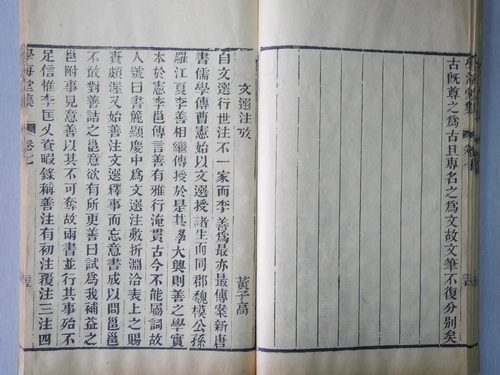 古既尊之爲古且專名之爲文故文筆不復分别矣
文選注攷
黃子高
自文選行世注不一家而李善爲最亦最傳案新唐
書儒學傳曹憲始以文選授諸生而同郡魏模公孫
羅江夏李善相繼傳授於是其學大興則善之學實
本於憲李邕傳言善有雅行淹貫古今不能屬詞故
人號曰書簏顯慶中爲文選注敷析淵洽表上之賜
賚頗渥又始善注文選釋事而忘意書成以問邕邕
不敢對善詰之邕意欲有所更善曰試爲我補益之
邕附事見意善以其不可奪故兩書並行其事殆不
足信惟李匡乂資暇錄稱善注有初注覆注三注四
學海堂集
卷七